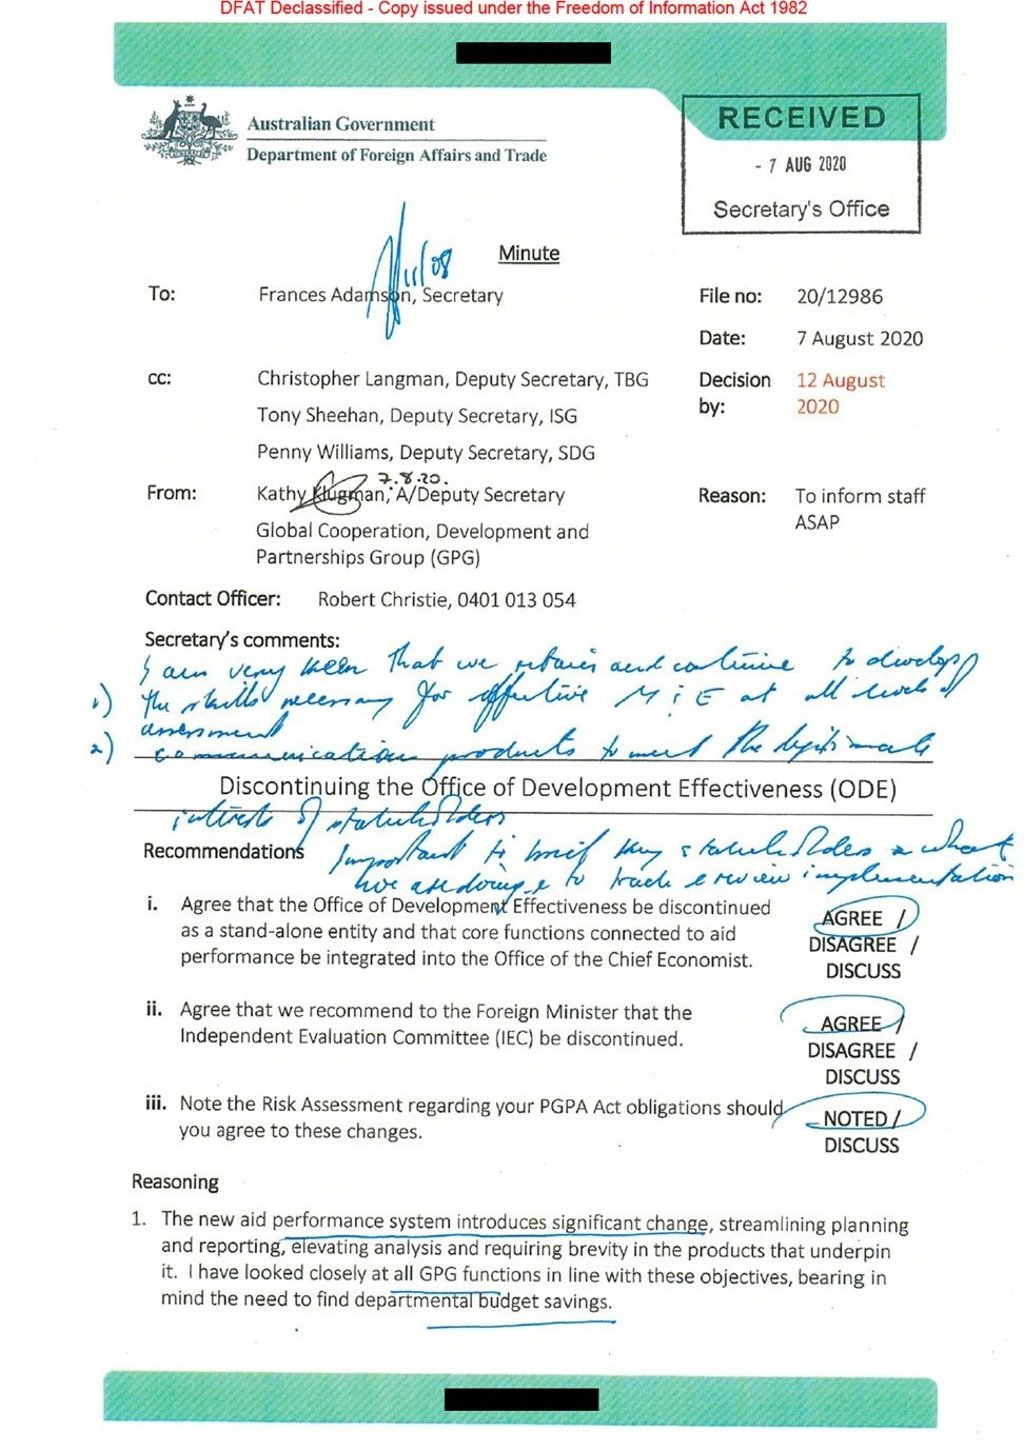 DFAT Declassified - Copy issued under the Freedom of Information Act 1982
Australian Government
Department of Foreign Affairs and Trade
RECEIVED
- 7 AUG 2020
Secretary's Office
11/08
Minute
To: Frances Adamson, Secretary
File no: 20/12986
Date: 7 August 2020
cc: Christopher Langman, Deputy Secretary, TBG
Decision by: 12 August 2020
Tony Sheehan, Deputy Secretary, ISG
Penny Williams, Deputy Secretary, SDG
7.8.20.
From: Kathy Klugman, A/Deputy Secretary
Reason: To inform staff ASAP
Global Cooperation, Development and
Partnerships Group (GPG)
Contact Officer: Robert Christie, 0401 013 054
Secretary's comments:
I am very keen that we retain and continue to develop
1) the skills necessary for effective M & E at all levels of
assessment
2) communications products to meet the legitimate
Discontinuing the Office of Development Effectiveness (ODE)
interests of stakeholders
Recommendations
Important to brief key stakeholders on what
we are doing & to track & review implementation
i. Agree that the Office of Development Effectiveness be discontinued
as a stand-alone entity and that core functions connected to aid
performance be integrated into the Office of the Chief Economist.
AGREE /
DISAGREE /
DISCUSS
ii. Agree that we recommend to the Foreign Minister that the
Independent Evaluation Committee (IEC) be discontinued.
AGREE /
DISAGREE /
DISCUSS
iii. Note the Risk Assessment regarding your PGPA Act obligations should
you agree to these changes.
NOTED /
DISCUSS
Reasoning
1. The new aid performance system introduces significant change, streamlining planning
and reporting, elevating analysis and requiring brevity in the products that underpin
it. I have looked closely at all GPG functions in line with these objectives, bearing in
mind the need to find departmental budget savings.